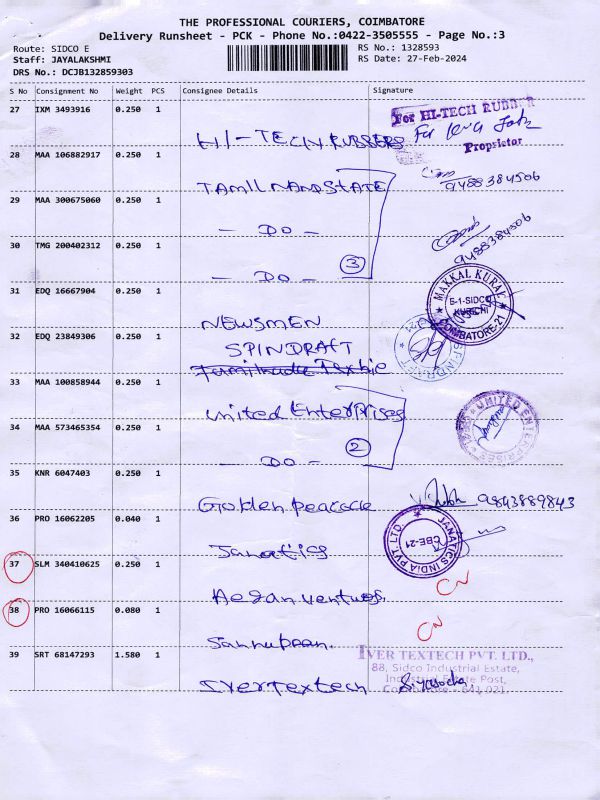 THE PROFESSIONAL COURIERS, COIMBATORE
Delivery Runsheet - PCK - Phone No.:0422-3505555 - Page No.:3
Route: SIDCO E
RS No.: 1328593
Staff: JAYALAKSHMI
RS Date: 27-Feb-2024
DRS No.: DCJB132859303
S No Consignment No Weight PCS Consignee Details Signature
27 IXM 3493916 0.250 1
For HI-TECH RUBBER
Proprietor
HI-TECH RUBBERS
28 MAA 106882917 0.250 1
9488384506
TAMIL NAND STATE
29 MAA 300675060 0.250 1
- DO -
9488384506
30 TMG 200402312 0.250 1
3
- DO -
31 EDQ 16667904 0.250 1
MAKKAL KURAL
E-1-SIDCO
KURICHI
COIMBATORE-21
NEWSMEN
32 EDQ 23849306 0.250 1
SPINDRAFT
SPINDRAFT
33 MAA 100858944 0.250 1
United Enterprises
UNITED ENTERPRISES
34 MAA 573465354 0.250 1
2
- DO -
35 KNR 6047403 0.250 1
9843889843
Golden peacock
36 PRO 16062205 0.040 1
JANATICS INDIA PVT LTD.
CBE-21
Janatics
37 SLM 340410625 0.250 1
CN
Aegan ventures.
38 PRO 16066115 0.080 1
CN
39 SRT 68147293 1.580 1
IVER TEXTECH PVT. LTD.,
88, Sidco Industrial Estate,
Industrial Estate Post,
Coimbatore - 641 021.
Ivertextech